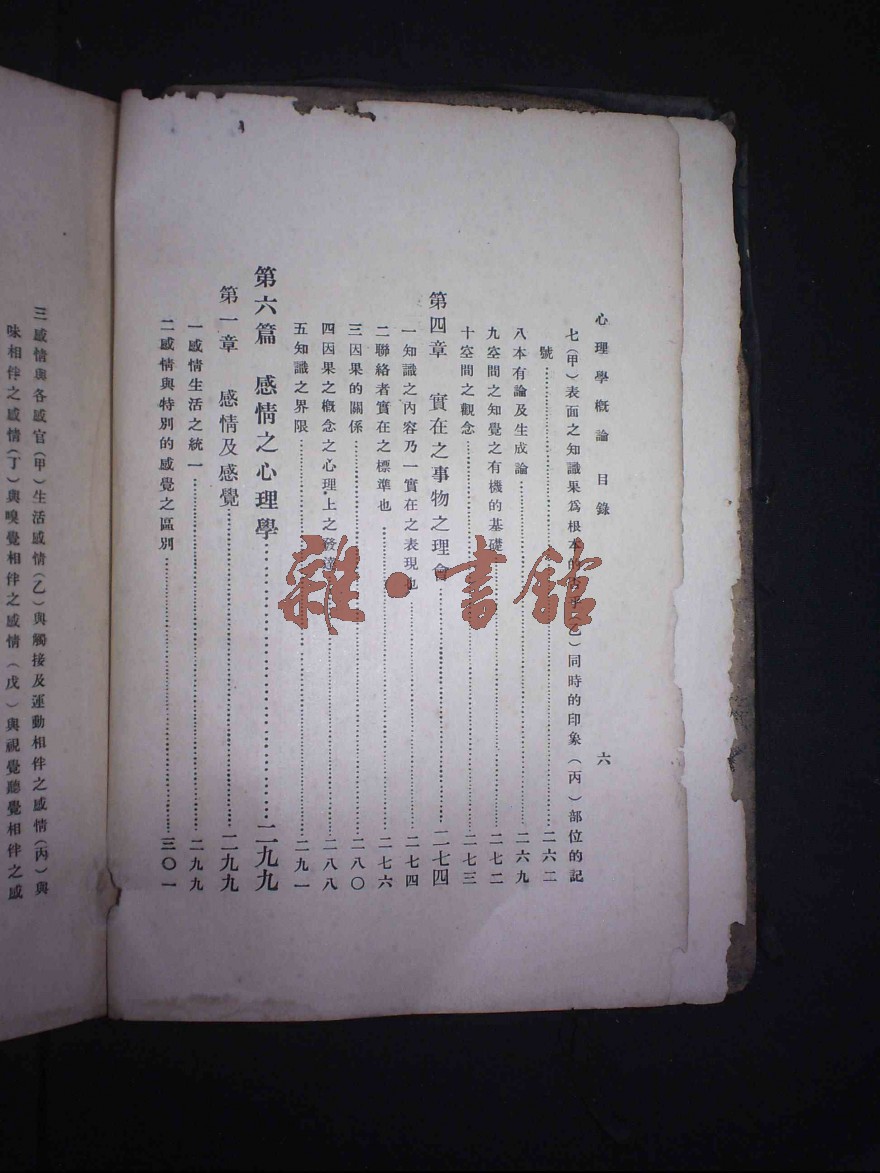 心理學概論 目錄 六
七(甲)表面之知識果爲根本的 同時的印象(丙)部位的記
號……二六二
八本有論及生成論……二六九
九空間之知覺之有機的基礎……二七二
十空間之觀念……二七三
第四章 實在之事物之理會……二七四
一知識之內容乃一實在之表現也……二七四
二聯絡者實在之標準也……二七六
三因果的關係……二八〇
四因果之概念之心理上之發達……二八八
五知識之界限……二九一
第六篇 感情之心理學……二九九
第一章 感情及感覺……二九九
一感情生活之統一……二九九
二感情與特別的感覺之區別……三〇一
三感情與各感官(甲)生活感情(乙)與觸接及運動相伴之感情(丙)與
味相伴之感情(丁)與嗅覺相伴之感情(戊)與視覺聽覺相伴之感
雜·書館